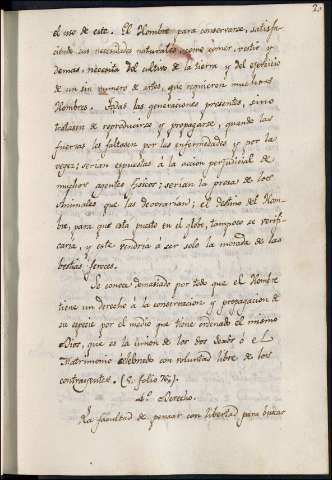 20
el uso de este. El Hombre para conservarse, satisfa-
ciendo sus necesidades naturales, como comer, vestir y
demas, necesita del cultivo de la tierra y del egercicio
de un sin numero de artes, que requieren muchos
Hombres. Todas las generaciones presentes, sino
tratasen de reproducirse y propagarse, quando las
fuerzas les faltasen por las enfermedades y por la
vegez; serian espuestas á la accion perjudicial de
muchos agentes fisicos; serian la presa de los
animales que las devorarian; el destino del Hom-
bre, para que esta puesto en el globe, tampoco se verifi-
caria, y este vendria á ser solo la morada de las
bestias feroces.
Se conoce demasiado por todo que el Hombre
tiene un derecho á la conservacion y propagacion de
su especie por el medio que tiene ordenado el mismo
Dios, que es la union de los dos sexôs ó el
Matrimonio celebrado con voluntad libre de los
contrayentes. (S. folio 76).
4.º Derecho.
La facultad de pensar con libertad para buscar